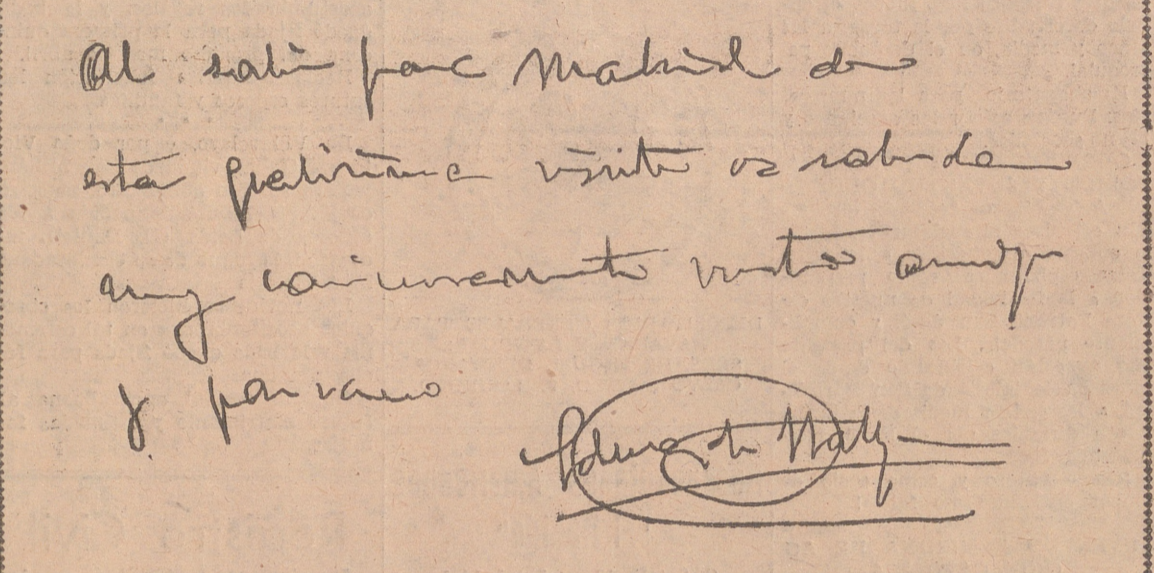 Al salir para Madrid de
esta gratisima visita os saluda
muy cariñosamente vuestro amigo
y paisano
Eduardo